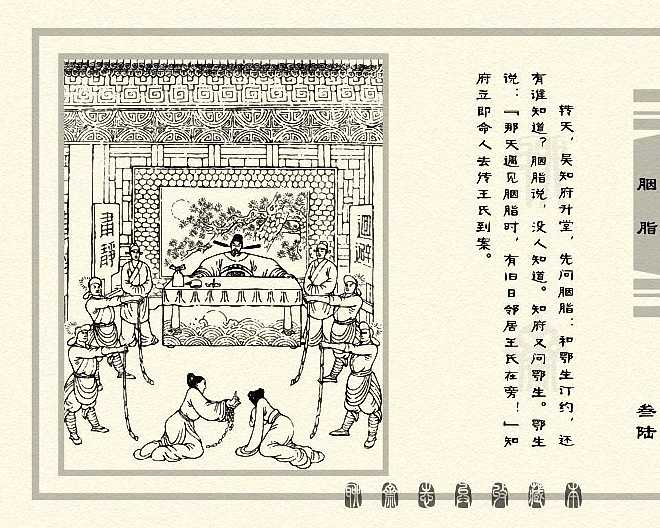 胭脂
叁陆
转天，吴知府升堂，先问胭脂：和鄂生订约，还
有谁知道？胭脂说，没人知道。知府又问鄂生。鄂生
说：「那天遇见胭脂时，有旧日邻居王氏在旁！」知
府立即命人去传王氏到案。
聊斋志异收藏本